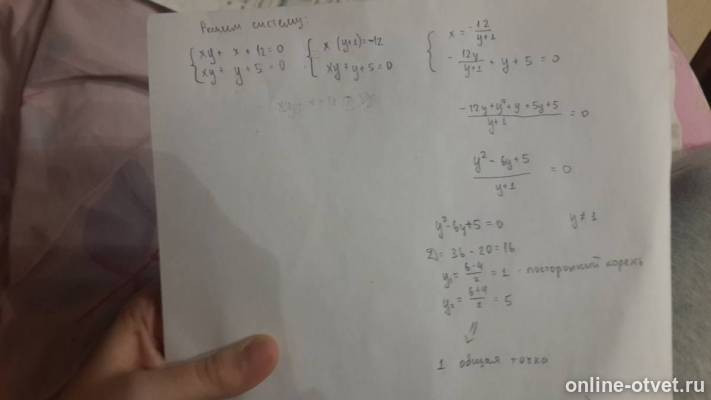 Решим систему:
{ xy + x + 12 = 0
{ xy + y + 5 = 0
{ x (y+1) = -12
{ xy + y + 5 = 0
{ x = -12/(y+1)
{ -12y/(y+1) + y + 5 = 0
(-12y + y² + y + 5y + 5)/(y+1) = 0
(y² - 6y + 5)/(y+1) = 0
y² - 6y + 5 = 0 y ≠ 1
D = 36 - 20 = 16
y₁ = (6-4)/2 = 1 - посторонний корень
y₂ = (6+4)/2 = 5
⇓
1 общая точка
online-otvet.ru